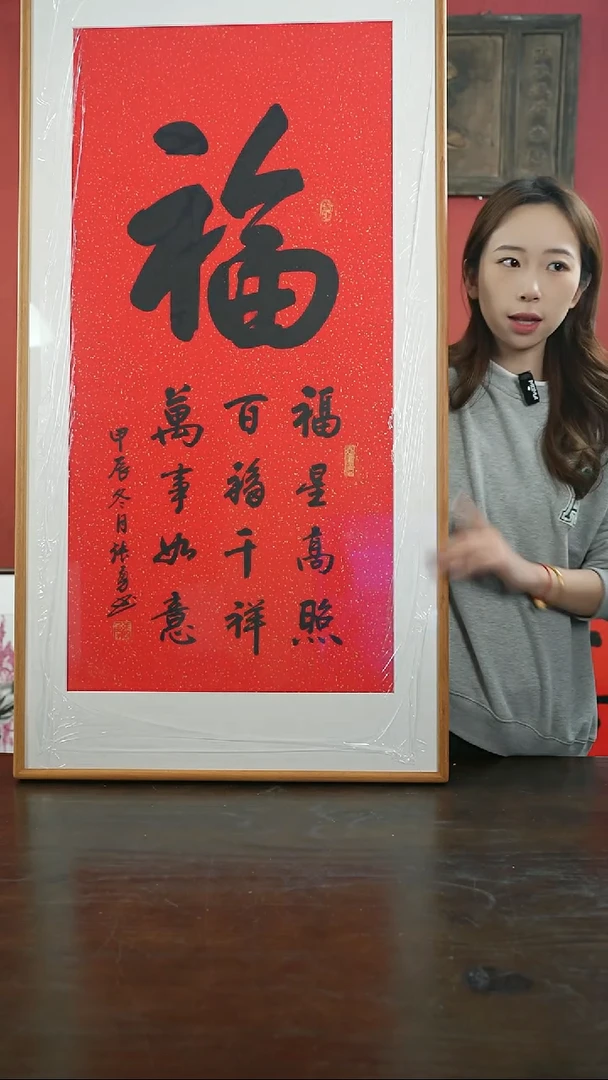 福
福星高照
百福千祥
萬事如意
甲辰冬月張勇书